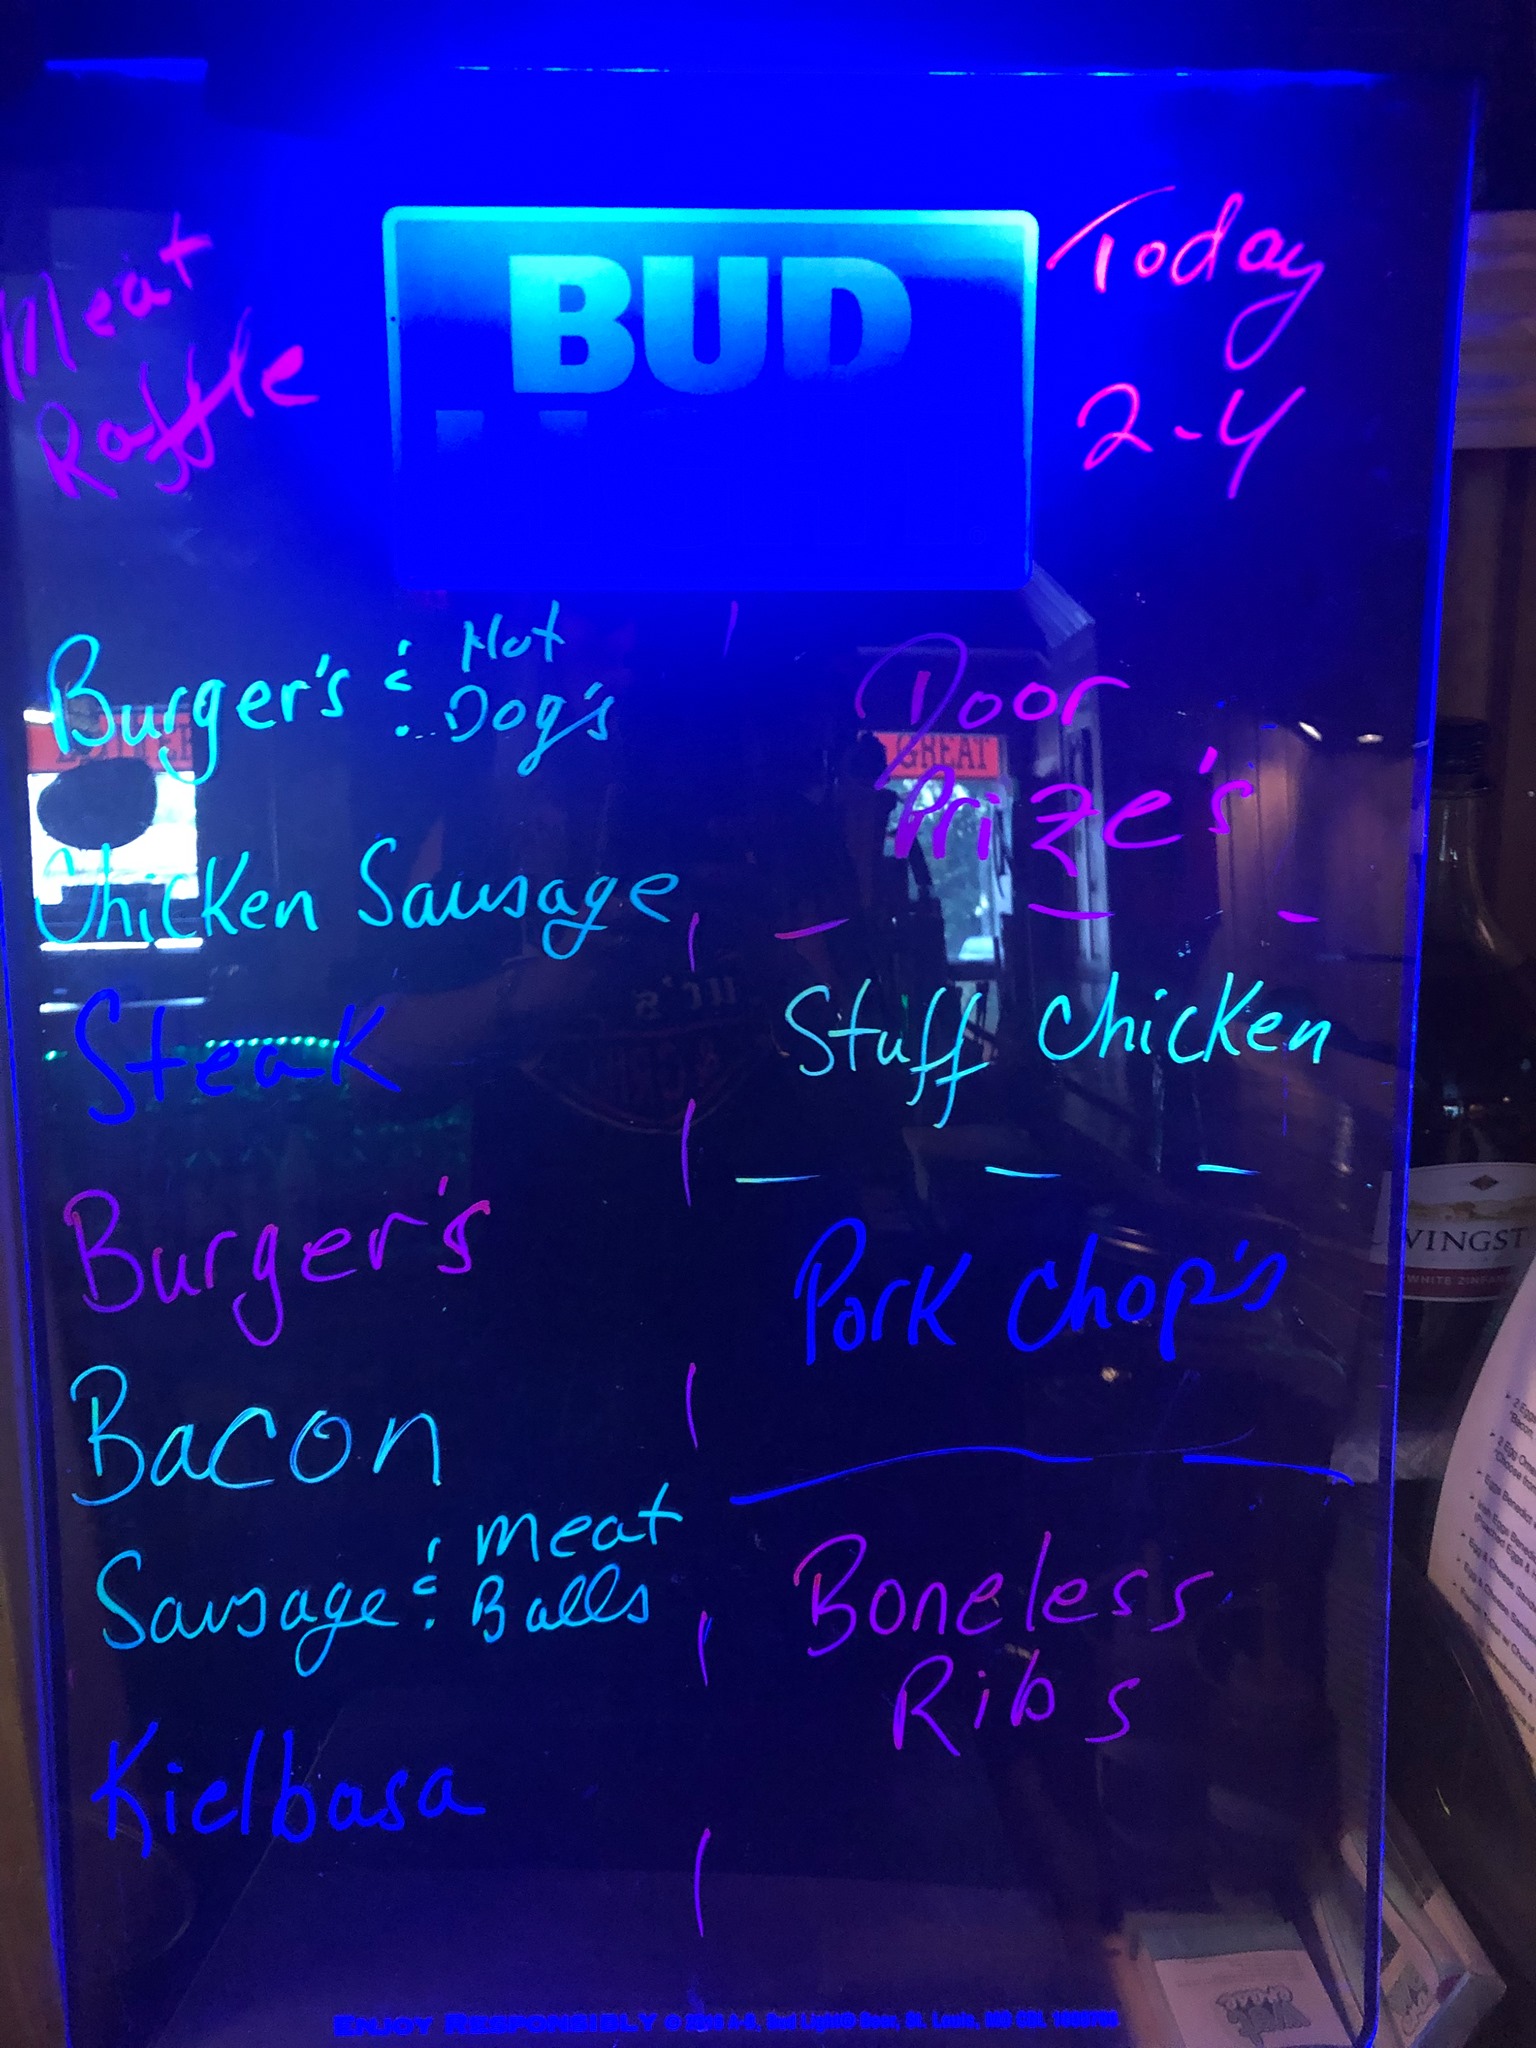 Meat
Raffle
BUD
Today
2-4
Burger's & Hot
Dog's
Chicken Sausage
Steak
Burger's
Bacon
Sausage & Meat
Balls
Kielbasa
Door
Prize's
GREAT
Stuff Chicken
Pork Chop's
Boneless
Ribs
VINGST
WHITE ZINFA
Enjoy Responsibly
2 Egg
Eggs Benedict